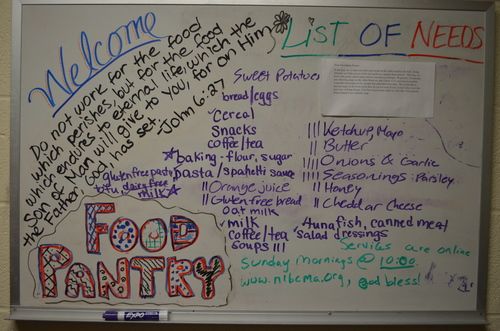 Welcome
Do not work for the food
which perishes, but for the food
which endures to eternal life, which the
Son of Man will give to you, for on Him
the Father, God, has set.
John 6:27
LiST OF NEEDS
Sweet Potatoes
bread/eggs
Cereal
Snacks
coffee/tea
baking - flour, sugar
gluten free pasta
pasta/spahetti sauce
dairy free
milk
Orange juice
Gluten-free bread
oat milk
milk
coffee/tea
soups III
IIII Ketchup, Mayo
II Butter
IIII Onions & Garlic
IIII Seasonings: Parsley
II Honey
II Cheddar Cheese
tunafish, canned meat
salad dressings
Services are online
Sunday mornings @ 10:00
www.nibcma.org, god bless!
FOOD
PANTRY
EXPO